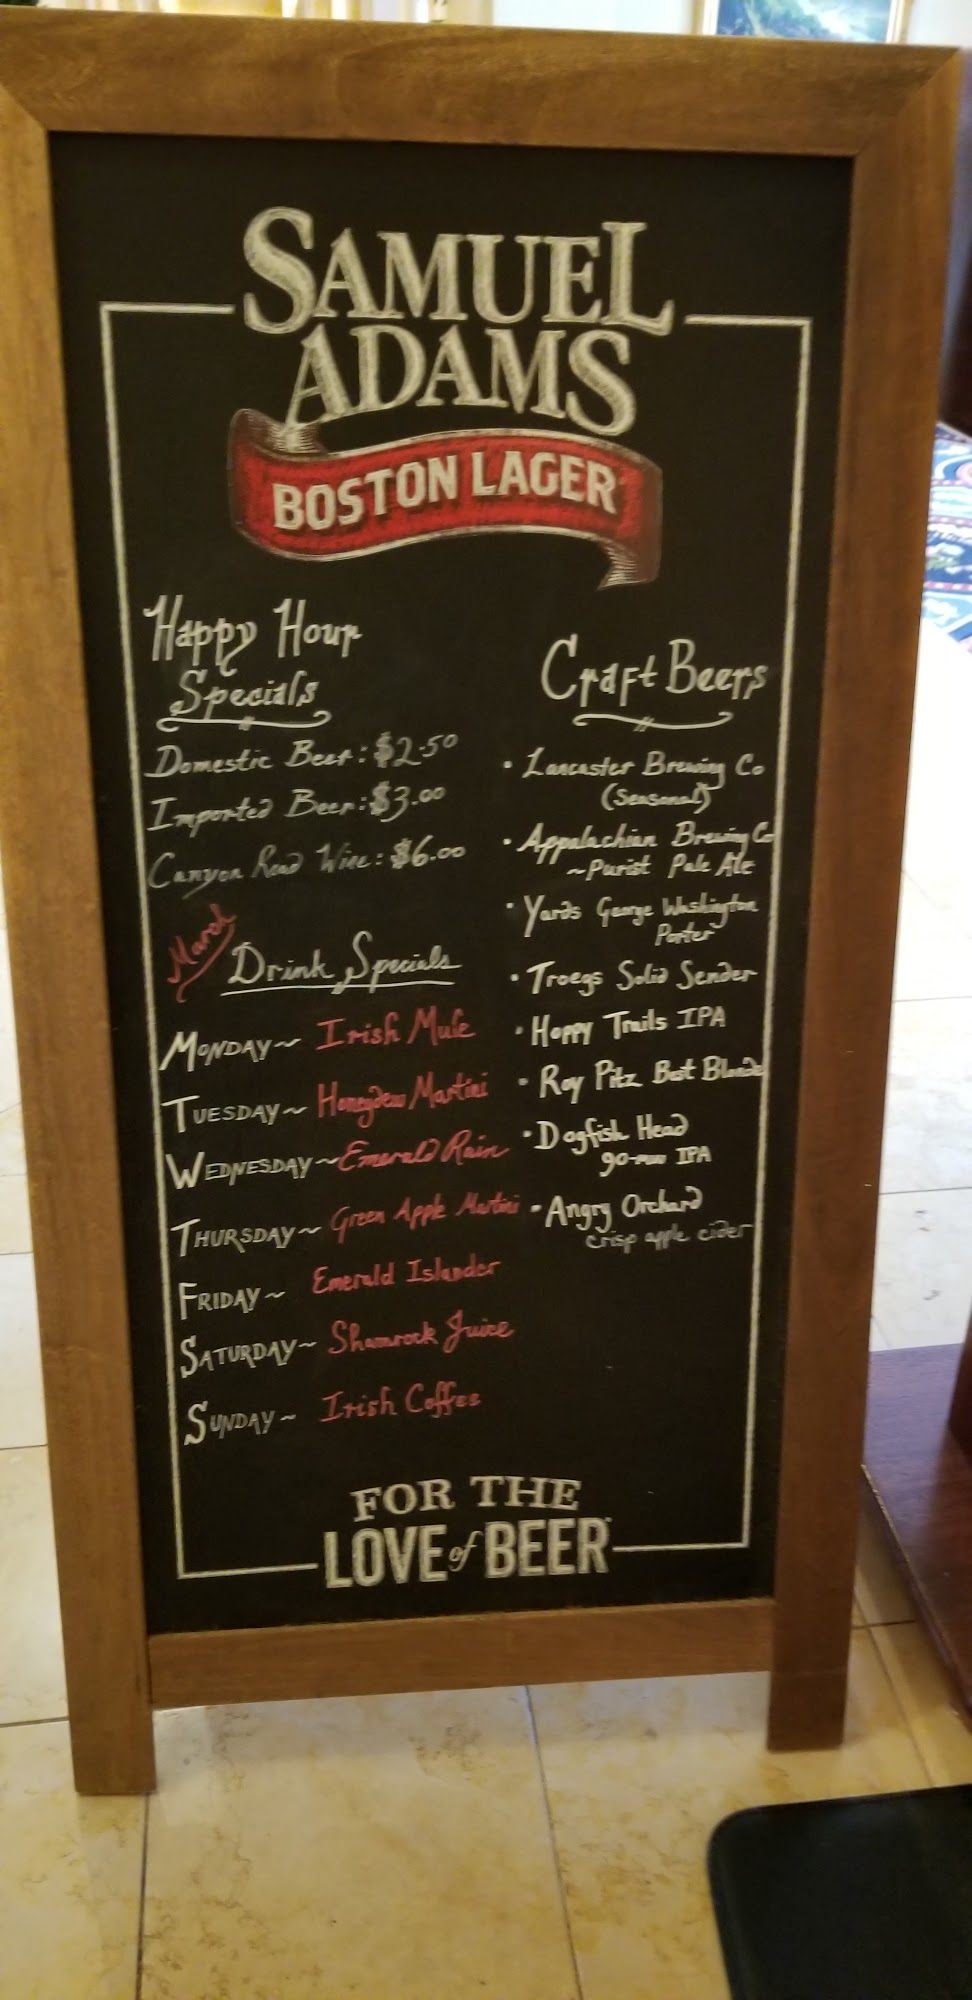 SAMUEL
ADAMS
BOSTON LAGER
Happy Hour
Specials
Domestic Beer: $2.50
Imported Beer: $3.00
Canyon Road Wine: $6.00
March
Drink Specials
MONDAY~ Irish Mule
TUESDAY~ Honeydew Martini
WEDNESDAY~ Emerald Rain
THURSDAY~ Green Apple Martini
FRIDAY~ Emerald Islander
SATURDAY~ Shamrock Juice
SUNDAY~ Irish Coffee
Craft Beers
• Lancaster Brewing Co
(Seasonal)
• Appalachian Brewing Co
~Purist Pale Ale
• Yards George Washington
Porter
• Troegs Solid Sender
• Hoppy Trails IPA
• Roy Pitz Best Blonde
• Dogfish Head
90-min IPA
• Angry Orchard
crisp apple cider
FOR THE
LOVE of BEER